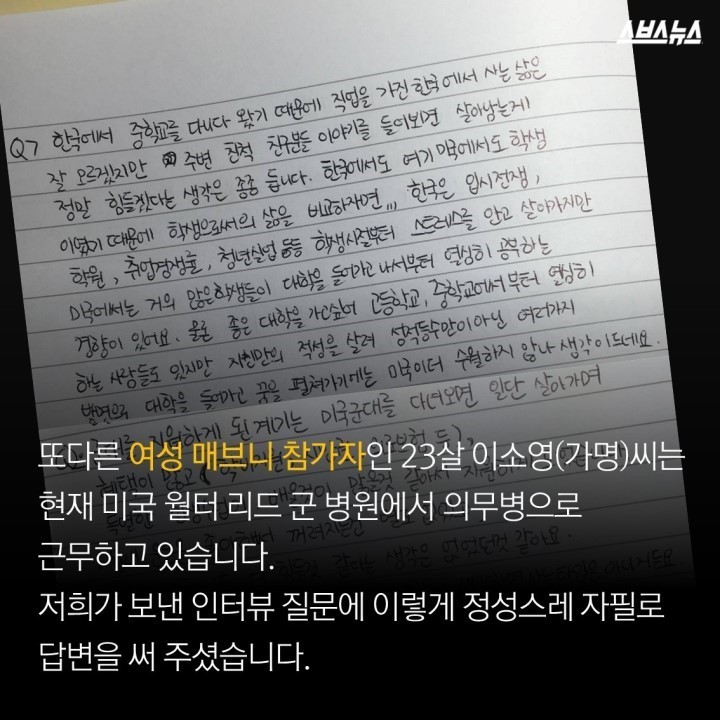 스브스뉴스
Q7 한국에서 중학교를 다니다 왔기 때문에 직업을 가진 한국에서 사는 삶은
잘 모르겠지만 주변 친척 친구분들 이야기를 들어보면 살아남는게
정말 힘들겠다는 생각은 종종 듭니다. 한국에서도 여기 미국에서도 학생
이였기 때문에 학생으로서의 삶을 비교하자면,,, 한국은 입시전쟁,
학원, 취업경쟁률, 청년실업 등등 학생시절부터 스트레스를 안고 살아가지만
미국에서는 거의 많은학생들이 대학을 들어가고 나서부터 열심히 공부하는
경향이 있어요. 물론 좋은 대학을 가고싶어 고등학교, 중학교에서부터 열심히
하는 사람들도 있지만 자신만의 적성을 살려 성적등수만이 아닌 여러가지
방면으로 대학을 들어가고 꿈을 펼쳐가기에는 미국이 더 수월하지 않나 생각이 드네요.
지원하게 된 계기는 미국군대를 다녀오면 일단 살아가며
혜택이 많고
같다는 생각은 없었던것 같아요.
또다른 여성 매브니 참가자인 23살 이소영(가명)씨는
현재 미국 월터 리드 군 병원에서 의무병으로
근무하고 있습니다.
저희가 보낸 인터뷰 질문에 이렇게 정성스레 자필로
답변을 써 주셨습니다.